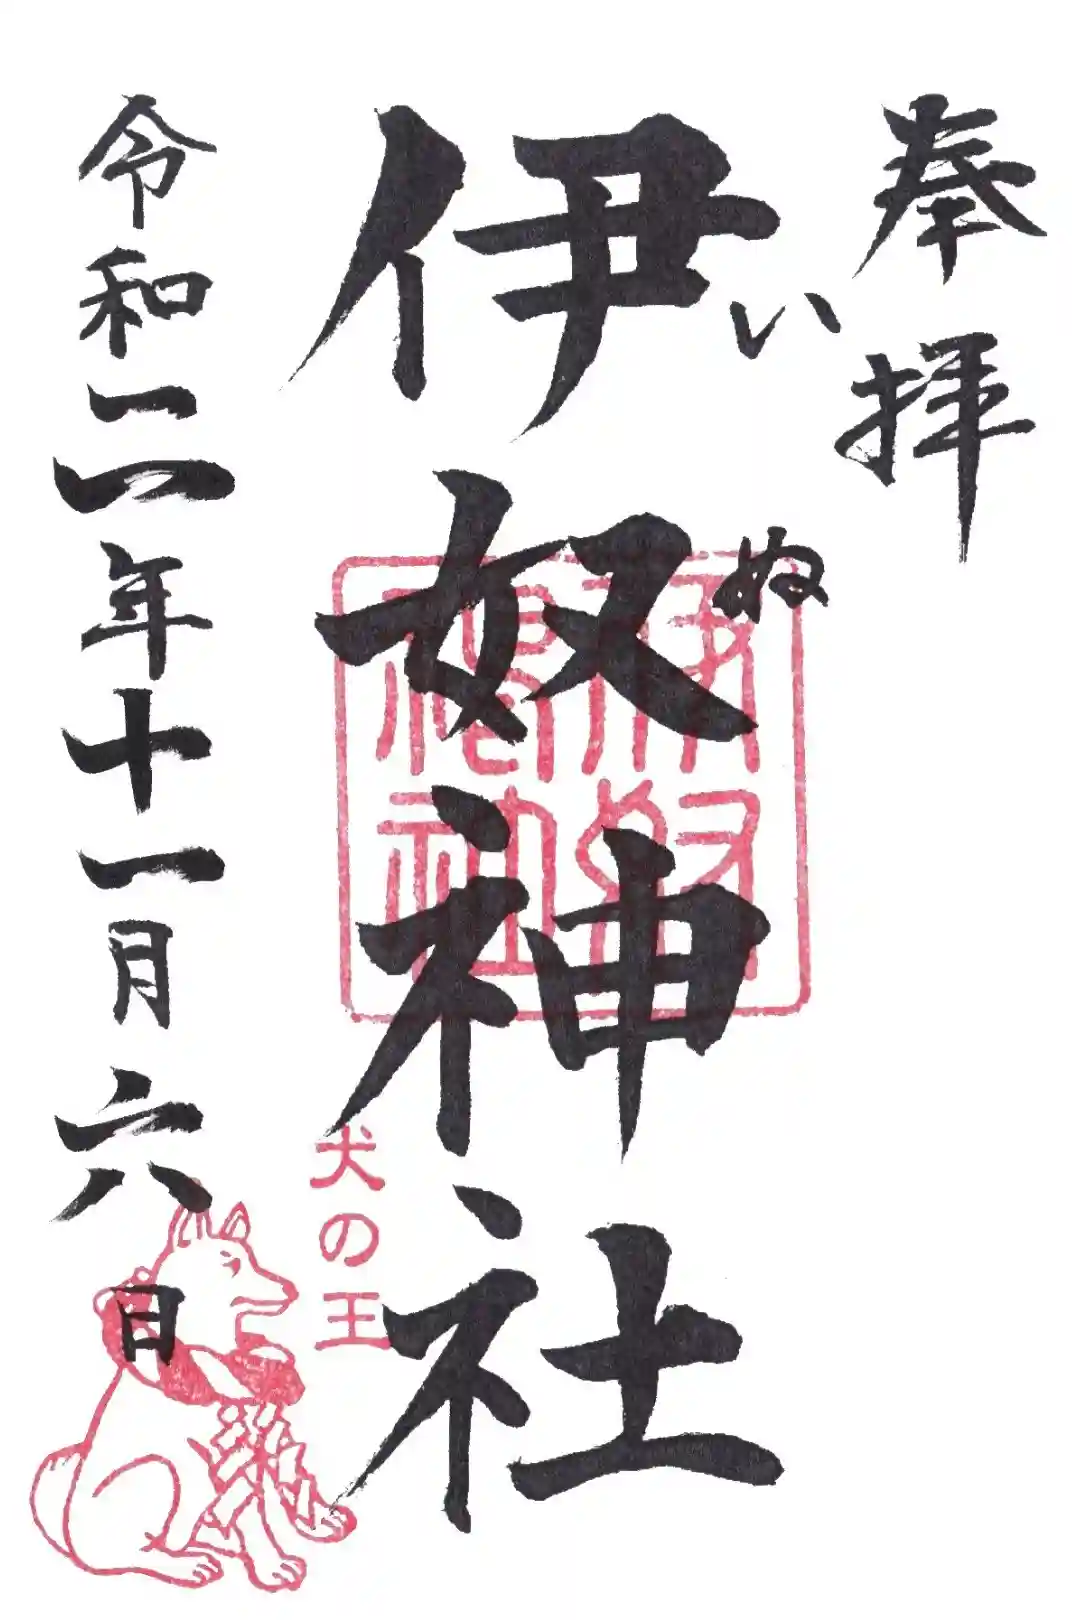 奉拝
いぬ
伊奴神社
伊奴神社
犬の王
令和二年十一月六日